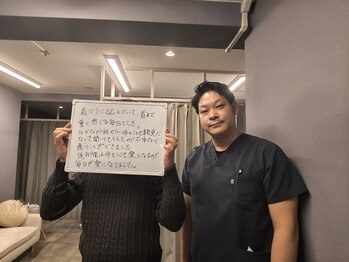 肩コリに悩んでいて、首まで
重く感じる毎日でした。
なかなか話せない体のことも親身に
なって聞いてもらえたので不安なく
通うことができました
施術後は体もいつも楽になるので
毎日が楽になりました。